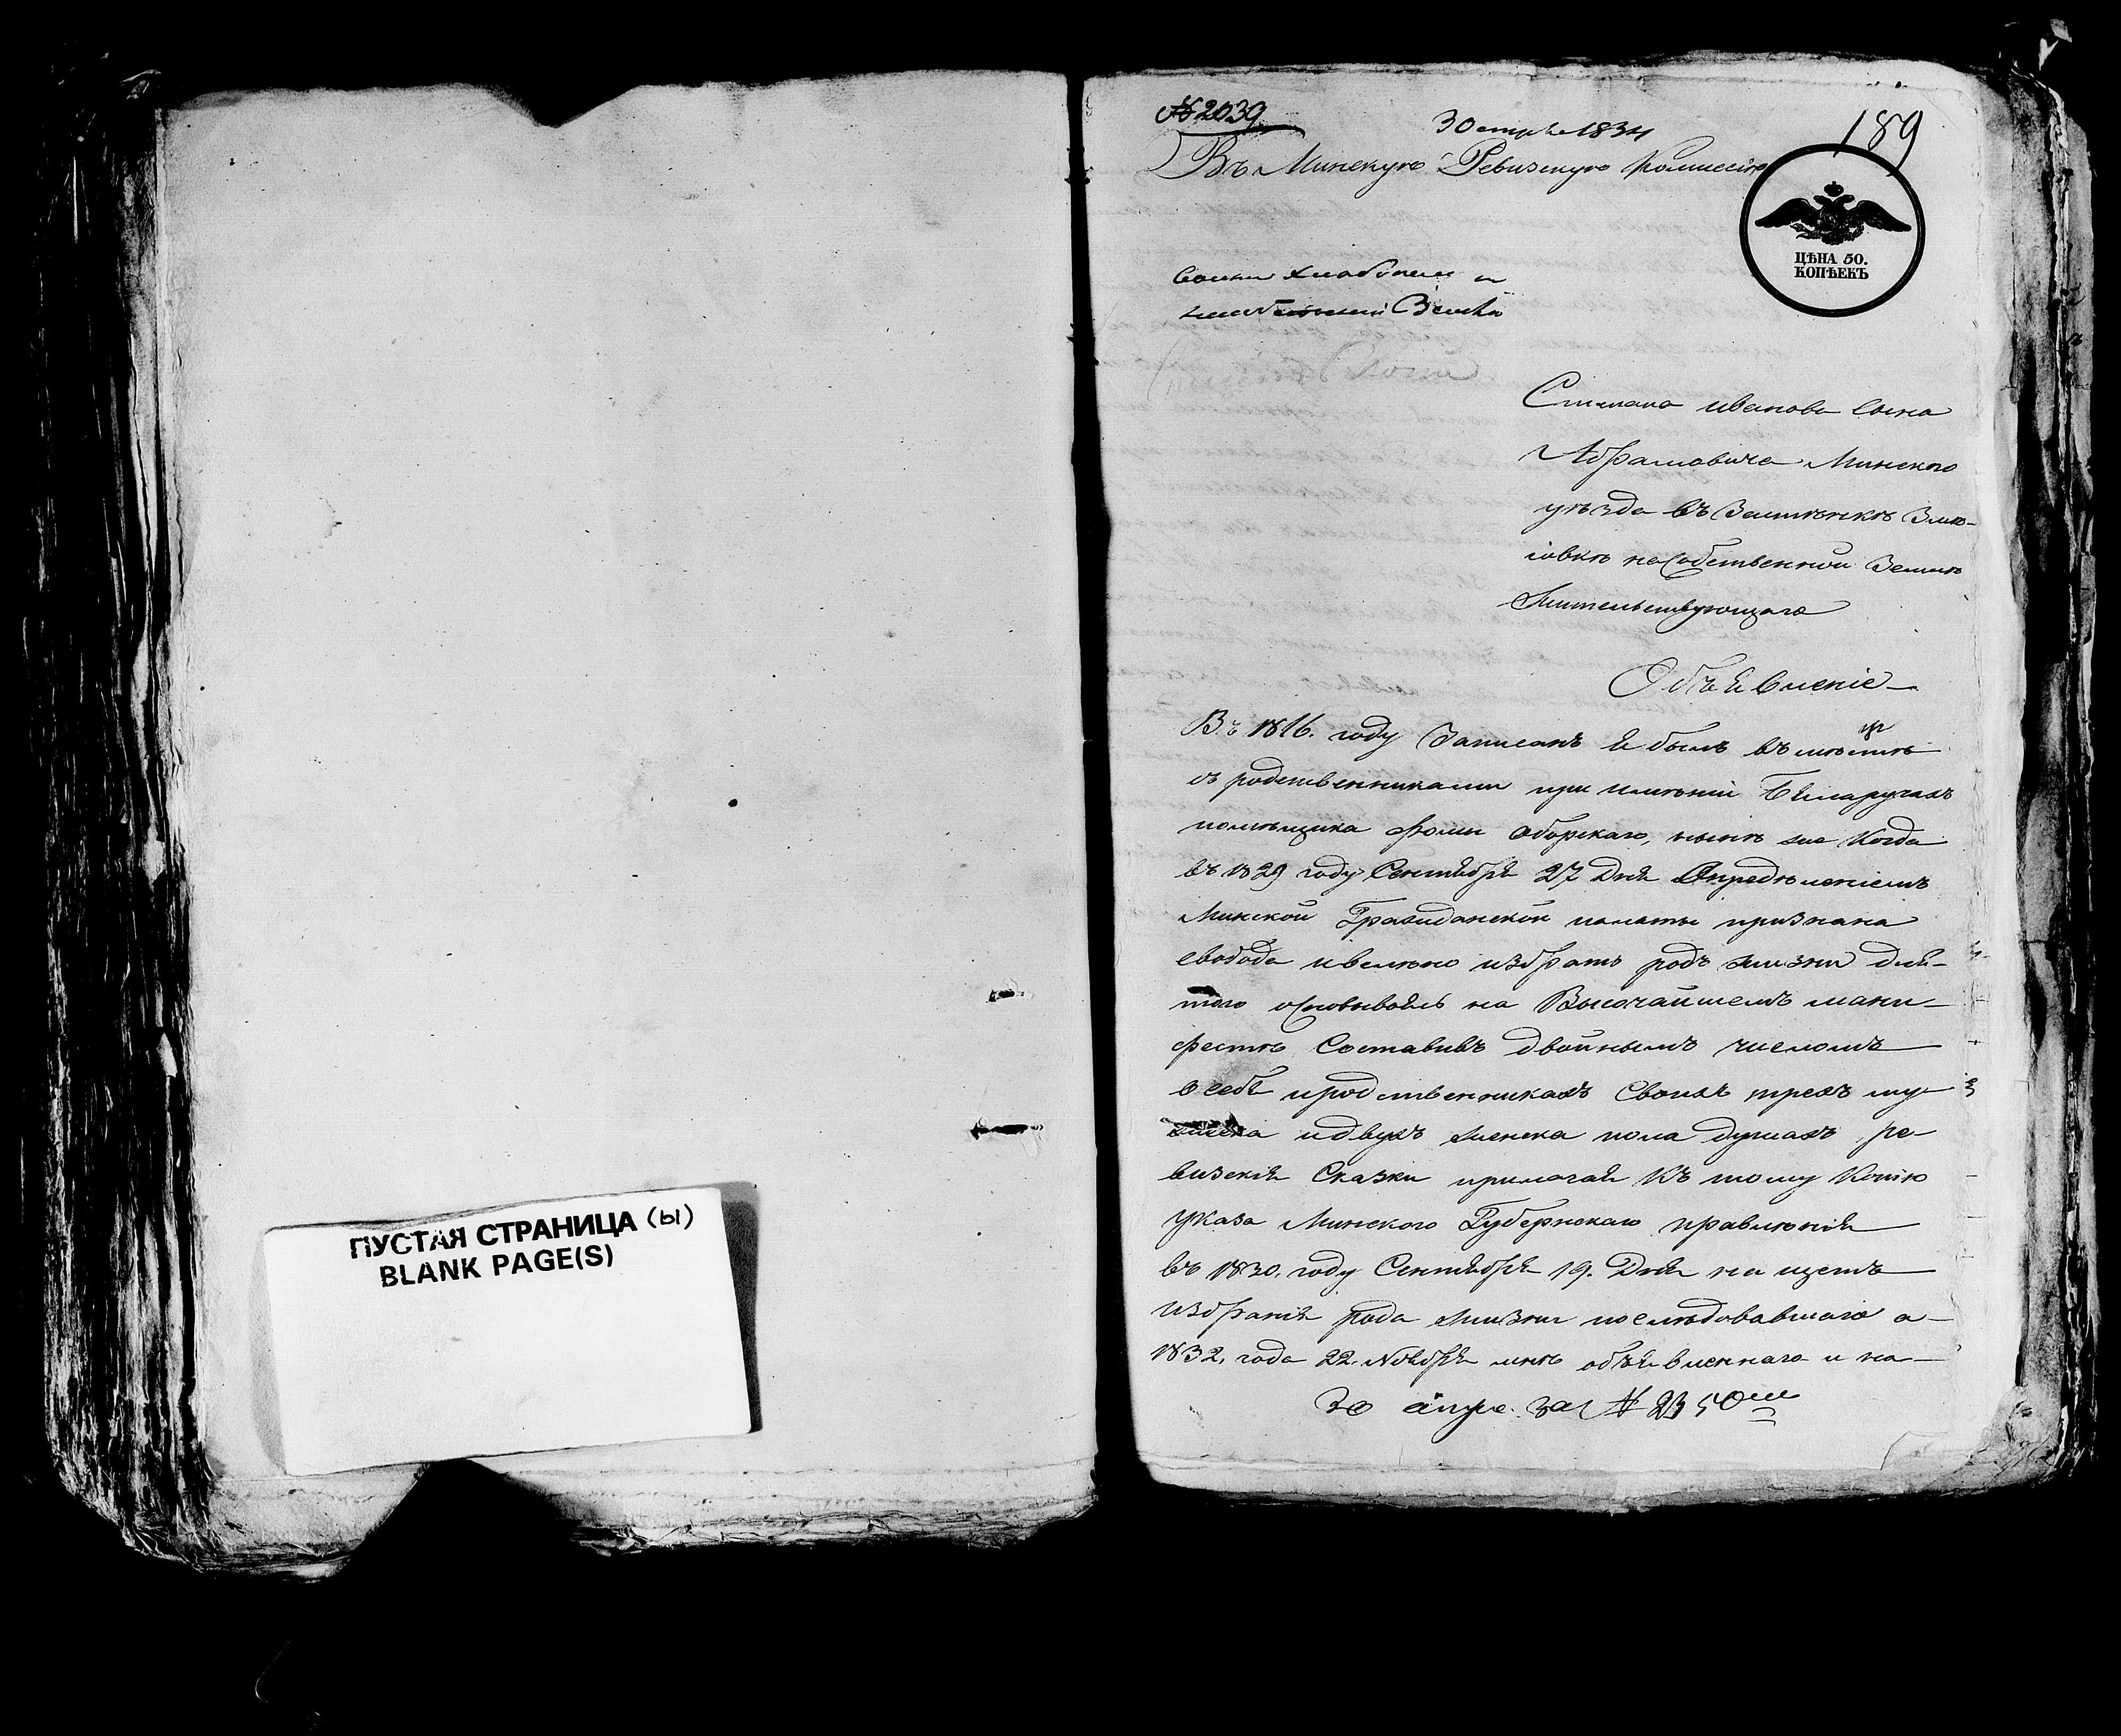 ПУСТАЯ СТРАНИЦА (Ы)
BLANK PAGE(S)
№ 2039
30 1834
189
Въ Минскую Ревизскую Комиссію
ЦѢНА 50.
КОПѢЕКЪ
Степана Иванова Сына
Абрамовича Минского
уѣзда въ Застѣнкѣ
на Собственной Землѣ
Жительствующаго
Объявленіе
Въ 1816. году Записанъ я былъ вмѣстѣ
съ родственниками при имѣніи Бѣларучахъ
помѣщика Фомы Оборскаго, нынѣ же когда
въ 1829 году Сентября 27 Дня Опредѣленіемъ
Минской Гражданской палаты признана
свобода и велѣно избрать родъ жизни для
того основываясь на Высочайшемъ мани-
фестѣ Составивъ двойнымъ числомъ
о себѣ и родственникахъ Своихъ трехъ му-
жеска и двухъ женска пола душахъ ре-
визскія Сказки прилагая къ тому Копію
указа Минского Губернскаго правленія
въ 1830. году Сентября 19. Дня на щетъ
избранія рода жизни послѣдовавшаго а
1832. года 22. Ноября мнѣ объявленнаго и на-
30 апре. за № 2350